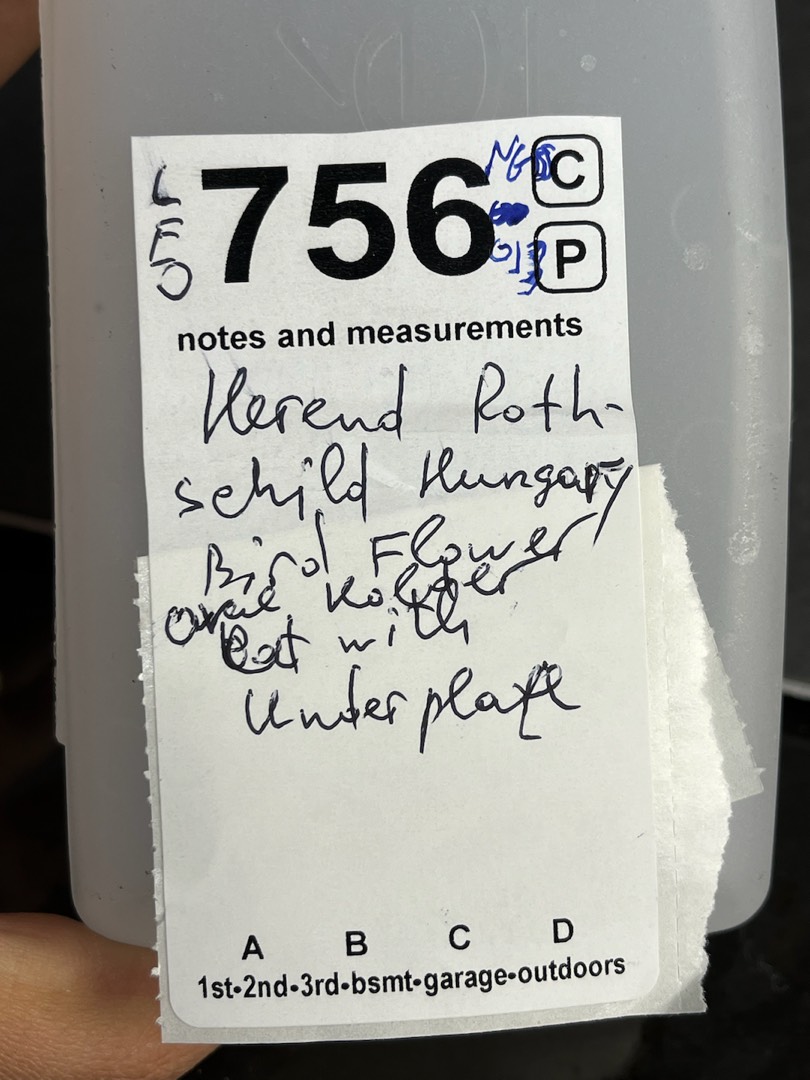 LEO
756
C
P
notes and measurements
Herend Roth-
schild Hungary
Bird Flower
oval Holder
Pot with
Underplate
A B C D
1st•2nd•3rd•bsmt•garage•outdoors